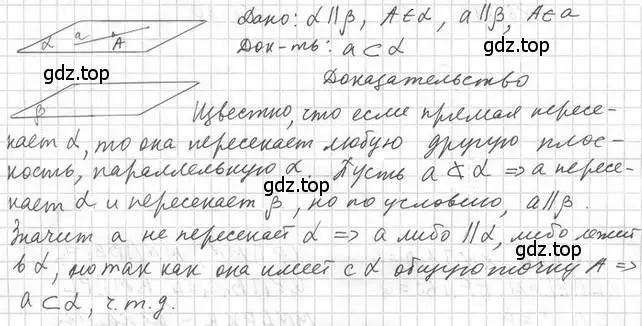 Дано: α∥β, A∈α, a∥β, A∈a
α a A
Док-ть: a⊂α
gdz.top
gdz.top
Доказательство
β
Известно, что если прямая пересе-
gdz.top
кает α, то она пересекает любую другую плос-
кость, параллельную α. Пусть a⊄α ⇒ a пересе-
gdz.top
кает α и пересекает β, но по условию, a∥β.
gdz.top
Значит a не пересекает α ⇒ a либо ∥α, либо лежит
в α, но так как она имеет с α общую точку A ⇒
gdz.top
a⊂α, ч.т.д.